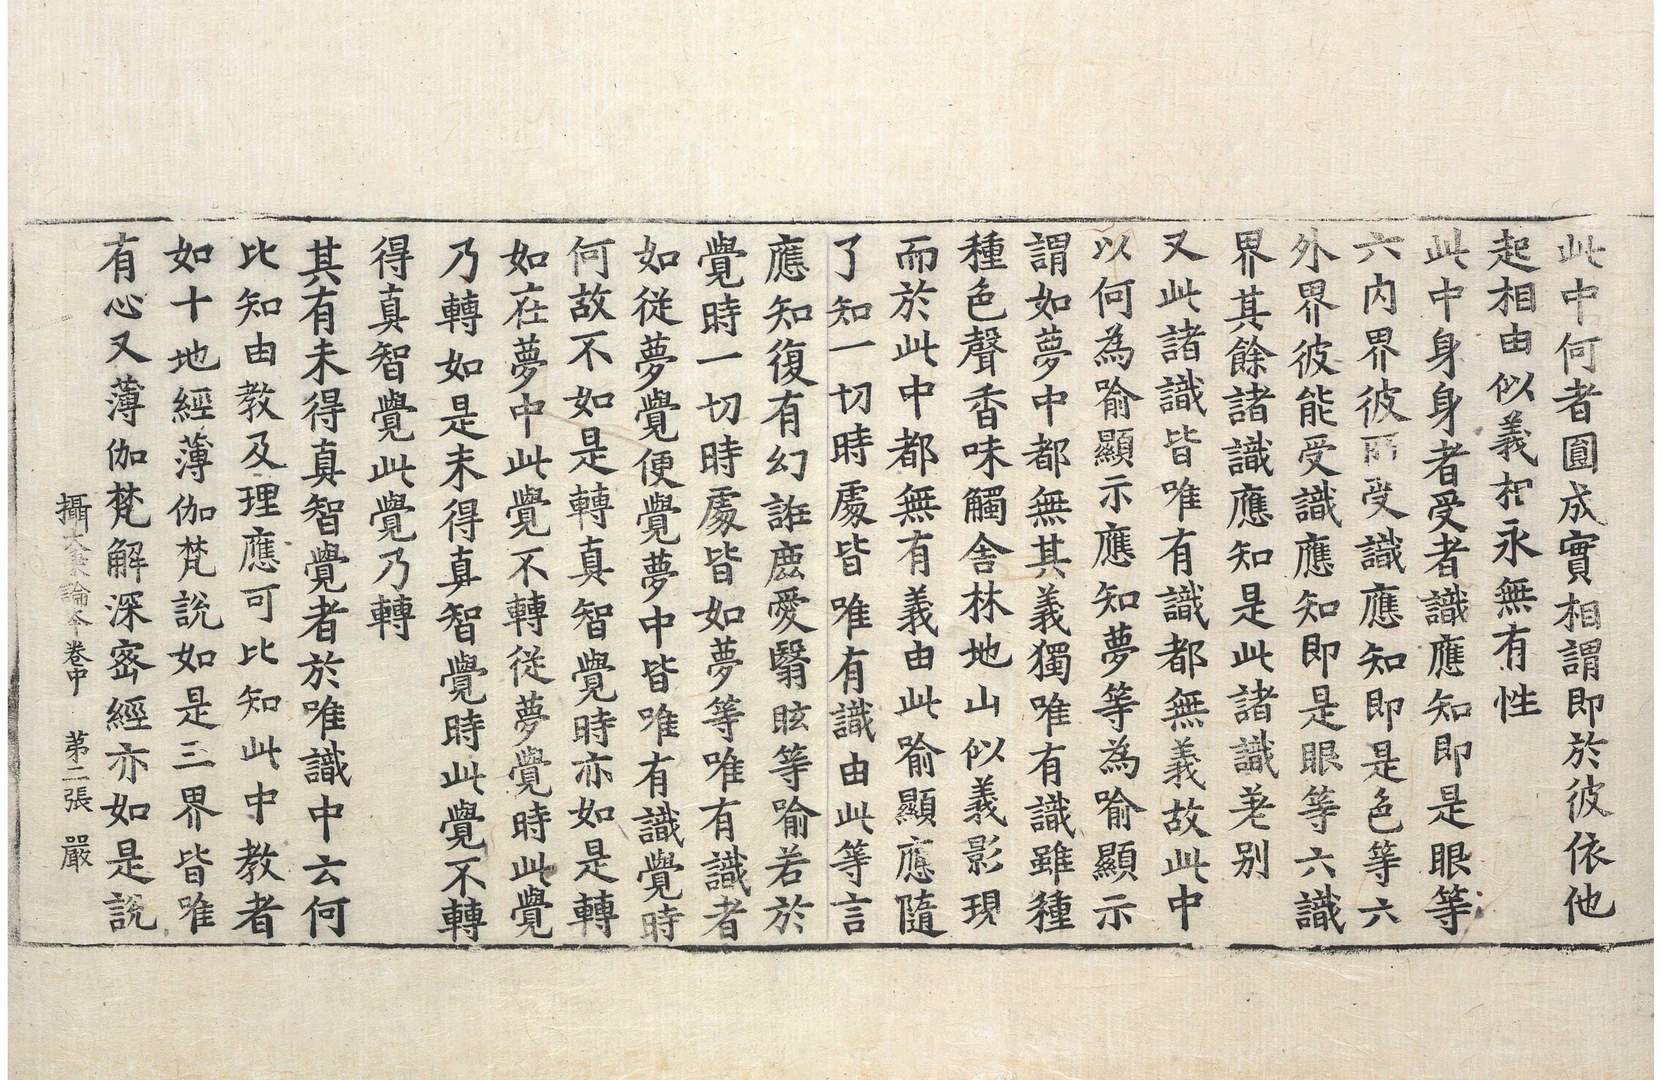 此中何者圓成實相謂即於彼依他
起相由似義相永無有性
此中身身者受者識應知即是眼等
六內界彼所受識應知即是色等六
外界彼能受識應知即是眼等六識
界其餘諸識應知是此諸識差别
又此諸識皆唯有識都無義故此中
以何為喻顯示應知夢等為喻顯示
謂如夢中都無其義獨唯有識雖種
種色聲香味觸舍林地山似義影現
而於此中都無有義由此喻顯應隨
了知一切時處皆唯有識由此等言
應知復有幻誑鹿愛翳眩等喻若於
覺時一切時處皆如夢等唯有識者
如從夢覺便覺夢中皆唯有識覺時
何故不如是轉真智覺時亦如是轉
如在夢中此覺不轉從夢覺時此覺
乃轉如是未得真智覺時此覺不轉
得真智覺此覺乃轉
其有未得真智覺者於唯識中云何
比知由教及理應可比知此中教者
如十地經薄伽梵說如是三界皆唯
有心又薄伽梵解深密經亦如是說
攝大乘論本卷中 第二張 嚴